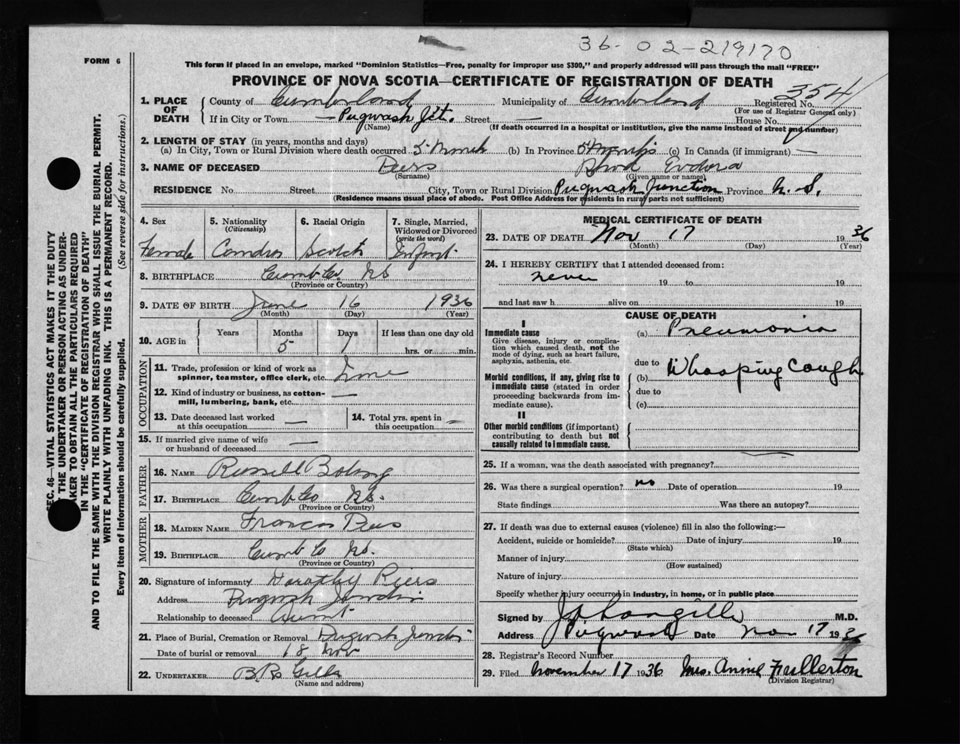 36-02-219170
FORM 6
This form if placed in an envelope, marked "Dominion Statistics—Free, penalty for improper use $300," and properly addressed will pass through the mail "FREE"
PROVINCE OF NOVA SCOTIA—CERTIFICATE OF REGISTRATION OF DEATH
354
1. PLACE OF DEATH
County of Cumberland Municipality of Cumberland Registered No.
(For use of Registrar General only)
If in City or Town — Pugwash Jct. Street — House No.
(Name) (If death occurred in a hospital or institution, give the name instead of street and number)
2. LENGTH OF STAY (in years, months and days)
(a) In City, Town or Rural Division where death occurred 5 month (b) In Province (c) In Canada (if immigrant) —
3. NAME OF DECEASED Eudora
(Surname) (Given name or names)
RESIDENCE No. Street City, Town or Rural Division Pugwash Junction Province N. S.
(Residence means usual place of abode. Post Office Address for residents in rural parts not sufficient)
4. Sex
Female
5. Nationality
(Citizenship)
6. Racial Origin
Scotch
7. Single, Married, Widowed or Divorced
(write the word)
Infant
8. BIRTHPLACE Cumb Co. NS
(Province or Country)
9. DATE OF BIRTH June 16 1936
(Month) (Day) (Year)
10. AGE in
Years Months Days If less than one day old
5 1 hrs. or min.
OCCUPATION
11. Trade, profession or kind of work as spinner, teamster, office clerk, etc.
12. Kind of industry or business, as cotton-mill, lumbering, bank, etc. —
13. Date deceased last worked at this occupation —
14. Total yrs. spent in this occupation —
15. If married give name of wife or husband of deceased —
FATHER
16. NAME Russell
17. BIRTHPLACE Cumb Co NS.
(Province or Country)
MOTHER
18. MAIDEN NAME Frances
19. BIRTHPLACE Cumb Co NS.
(Province or Country)
20. Signature of informant Dorothy Peers
Address Pugwash Junction
Relationship to deceased Aunt
21. Place of Burial, Cremation or Removal Pugwash Junction
Date of burial or removal 18 Nov
22. UNDERTAKER
(Name and address)
MEDICAL CERTIFICATE OF DEATH
23. DATE OF DEATH Nov 17 1936
(Month) (Day) (Year)
24. I HEREBY CERTIFY that I attended deceased from:
never 19 to 19
and last saw h alive on 19
CAUSE OF DEATH
I
Immediate cause
Give disease, injury or complication which caused death, not the mode of dying, such as heart failure, asphyxia, asthenia, etc.
(a) Pneumonia
due to
Morbid conditions, if any, giving rise to immediate cause (stated in order proceeding backwards from immediate cause).
(b) Whooping Cough
due to
(c)
II
Other morbid conditions (if important) contributing to death but not causally related to immediate cause.
25. If a woman, was the death associated with pregnancy?
26. Was there a surgical operation? no Date of operation 19
State findings Was there an autopsy?
27. If death was due to external causes (violence) fill in also the following:—
Accident, suicide or homicide? Date of injury 19
(State which)
Manner of injury
(How sustained)
Nature of injury
Specify whether injury occurred in industry, in home, or in public place
Signed by M.D.
Address Pugwash Date Nov 17 1936
28. Registrar's Record Number
29. Filed November 17 1936 Mrs. Annie Fullerton
(Division Registrar)
SEC. 46—VITAL STATISTICS ACT MAKES IT THE DUTY
OF THE UNDERTAKER OR PERSON ACTING AS UNDER-
TAKER TO OBTAIN ALL THE PARTICULARS REQUIRED
IN THE "CERTIFICATE OF REGISTRATION OF DEATH"
AND TO FILE THE SAME WITH THE DIVISION REGISTRAR WHO SHALL ISSUE THE BURIAL PERMIT.
WRITE PLAINLY WITH UNFADING INK. THIS IS A PERMANENT RECORD.
Every item of information should be carefully supplied. (See reverse side for instructions.)